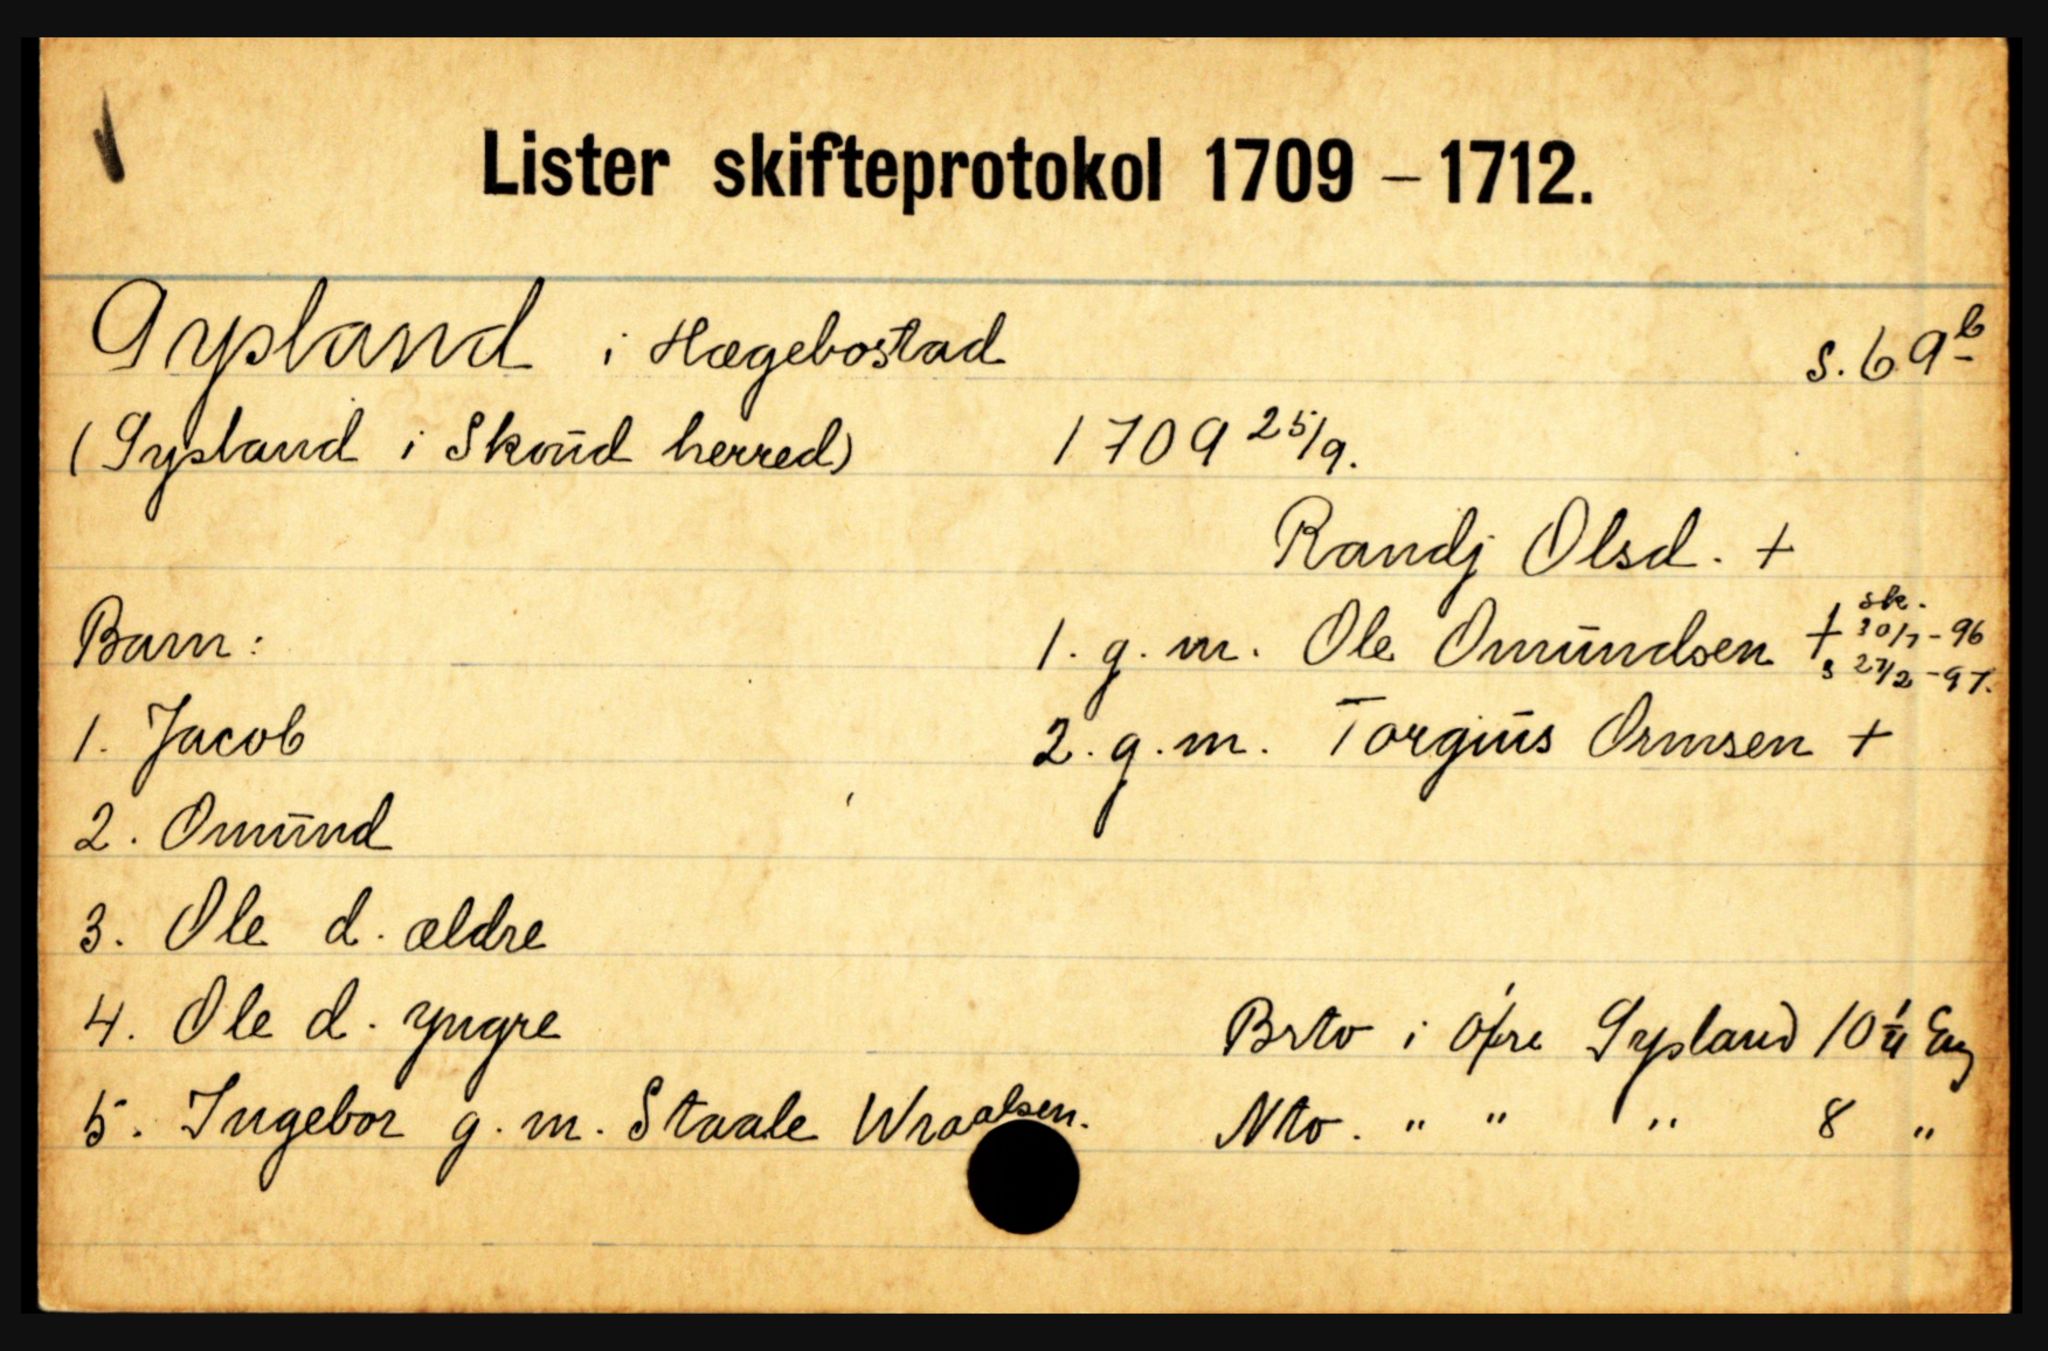 Lister skifteprotokol 1709 – 1712.
Gysland i Hægebostad s. 69b
(Gysland i Skoud herred) 1709 25/9.
Randj Olsd. +
Barn: 1. g. m. Ole Omundsen + sk. 30/7 - 96
s 27/2 - 97.
1. Jacob 2. g. m. Torgius Ormsen +
2. Omund
3. Ole d. ældre
4. Ole d. yngre Brto i Øfre Gysland 10
5. Ingebor g. m. Staale Wraalsen. Nto. " " " 8 "